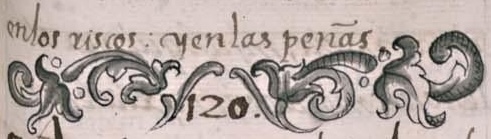 enlos riscos: yenlas peñas
120.